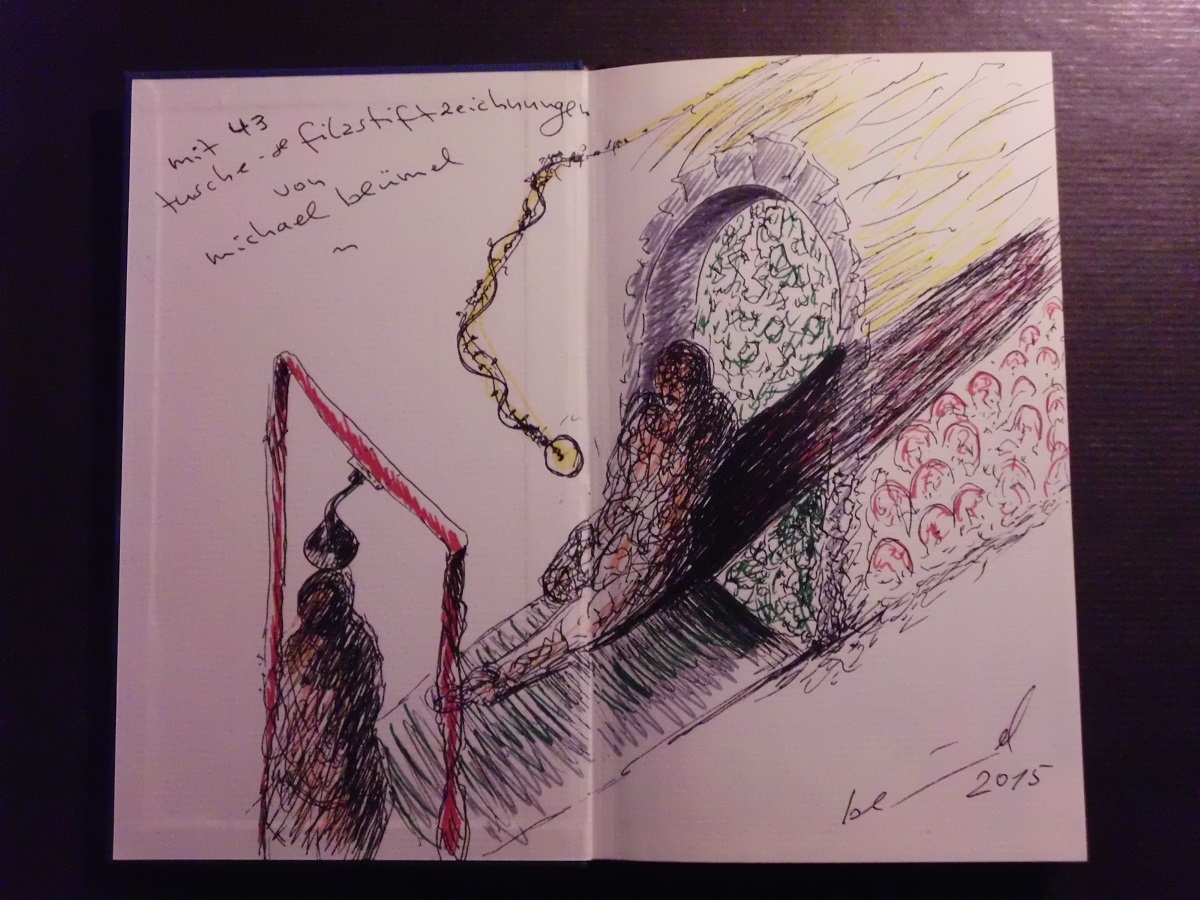 mit 43
tusche-de filzstiftzeichnungen
von
michael blümel
2015